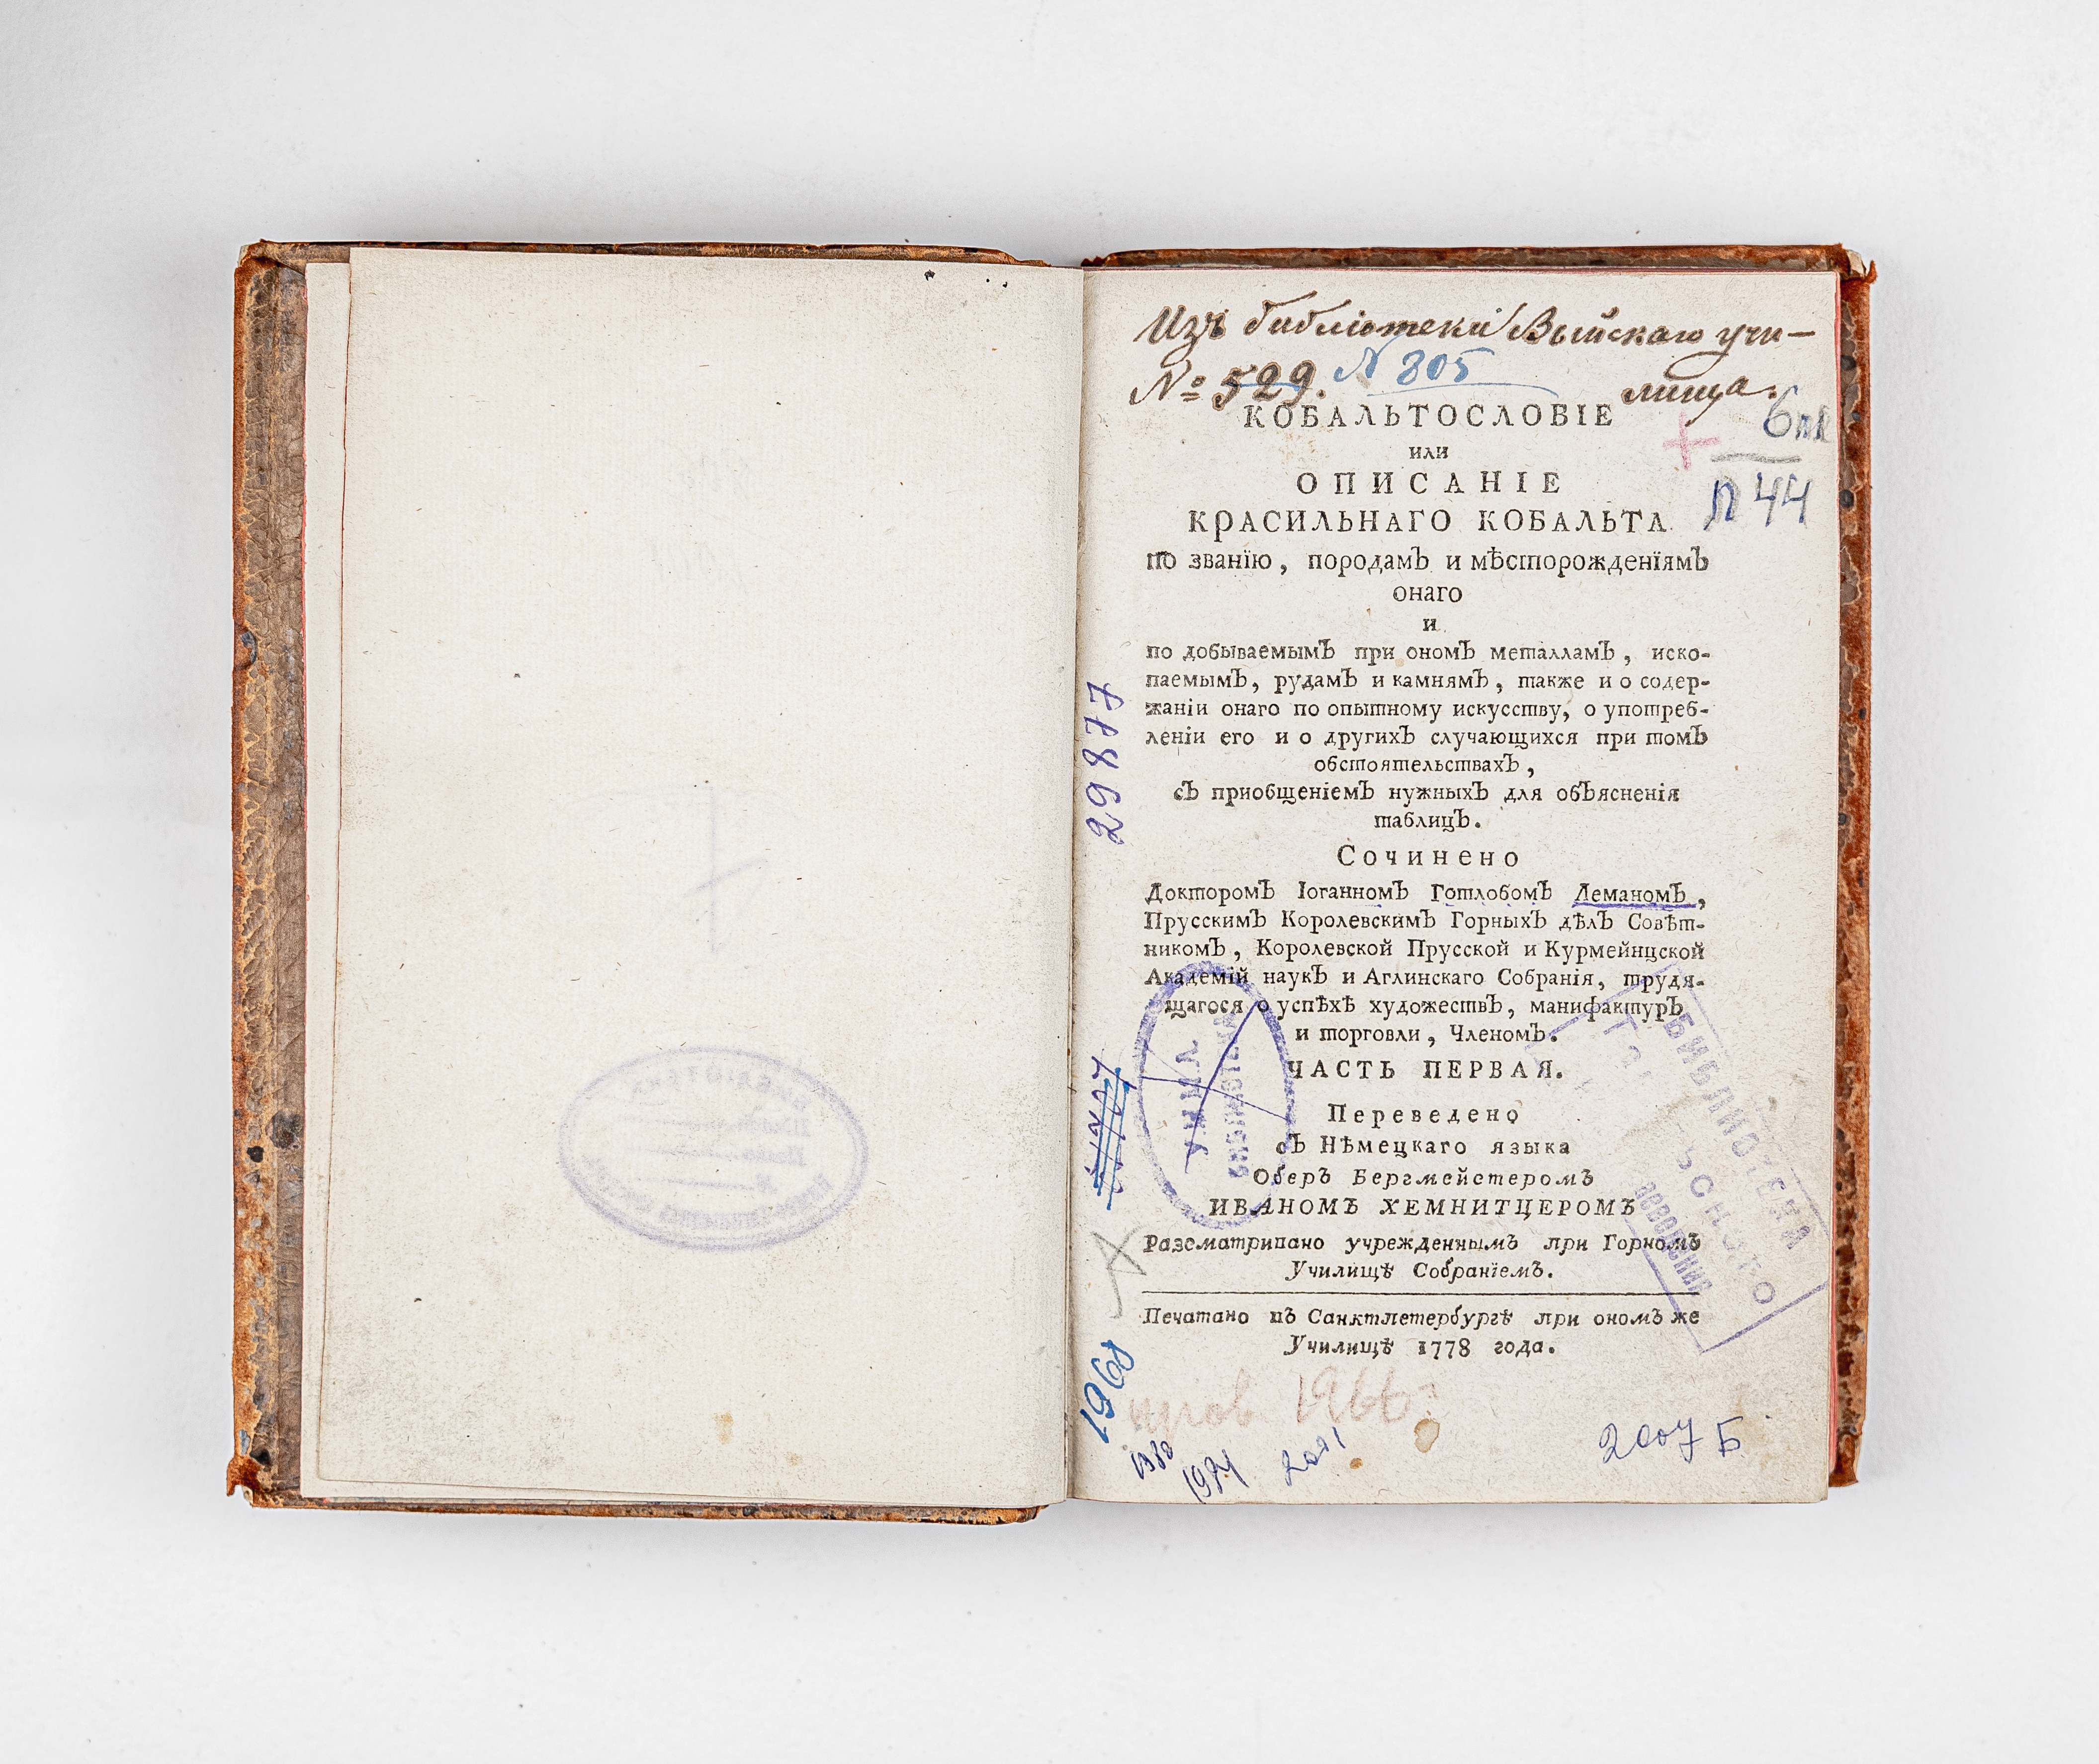 Изъ библіотеки Выйскаго учи-
№ 529. N 805 лища.
6п1
Л 44
КОБАЛЬТОСЛОВІЕ
или
ОПИСАНІЕ
КРАСИЛЬНАГО КОБАЛЬТА
по званїю, породамЪ и мѣсторожденїямЪ
онаго
и
по добываемымЪ при ономЪ металламЪ, иско-
паемымЪ, рудамЪ и камнямЪ, также и о содер-
жаніи онаго по опытному искусству, о употреб-
леніи его и о другихЪ случающихся при томЪ
обстоятельствахЪ,
сЪ приобщеніемЪ нужныхЪ для обЪясненія
таблицЪ.
Сочинено
ДокторомЪ ІоганномЪ ГотлобомЪ ЛеманомЪ,
ПрусскимЪ КоролевскимЪ ГорныхЪ дѣлЪ Совѣт-
никомЪ, Королевской Прусской и Курмейнцской
Академій наукЪ и Аглинскаго Собранія, трудя-
щагося о успѣхѣ художествЪ, манифактурЪ
и торговли, ЧленомЪ.
ЧАСТЬ ПЕРВАЯ.
Переведено
сЪ Нѣмецкаго языка
Оберъ Бергмейстеромъ
ИВАНОМЪ ХЕМНИТЦЕРОМЪ
Разсматривано учрежденнымъ при Горномъ
Училищѣ Собранїемъ.
Печатано въ Санктпетербургѣ при ономъ же
Училищѣ 1778 года.
29877
БИБЛИОТЕКА
1968
1966
1980
2007 Б